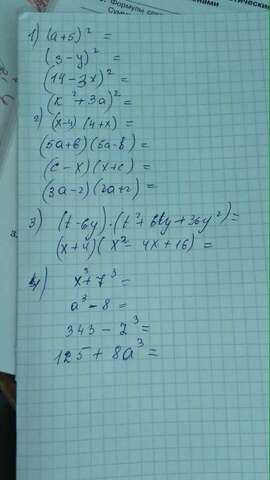 5. Формулы
1) (a+5)² =
(3-y)² =
(14-3x)² =
(x²+3a)² =
2) (x-4)(4+x) =
(5a+b)(5a-b) =
(c-x)(x+c) =
3) (t-6y)·(t²+6ty+36y²) =
(x+4)(x²-4x+16) =
4) x³+7³ =
a³-8 =
343-z³ =
125+8a³ =